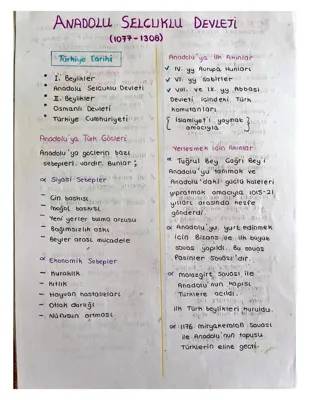 ANADOLU SELCUKLU DEVLETİ
(1077-1308)
Türkiye Tarihi
* I. Beylikler
* Anadolu Selcuklu Devleti
* II. Beylikler
* Osmanlı Devleti
* Türkiye Cumhuriyeti
Anadolu'ya Türk Göcleri
Anadolu'ya göclerin bazı
sebepleri vardır. Bunlar;
∝ Siyasi Sebepler
- Cin baskısı
- Moğol baskısı
- Yeni yerler bulma arzusu
- Bağımsızlık aşkı
- Beyler arası mücadele
∝ Ekonomik Sebepler
- Kuraklık
- Kıtlık
- Hayvan hastalıkları
- Otlak darlığı
- Nüfusun artması
Anadolu'ya İlk Akınlar
✓ IV. yy Avrupa Hunları
✓ VI. yy Sabirler
✓ VIII. ve IX. yy Abbasi
Devleti içindeki Türk
komutanları
{ İslamiyet'i yaymak }
amacıyla
Yerleşmek İcin Akınlar
∝ Tuğrul Bey Cağrı Bey'i
Anadolu'yu tanımak ve
Anadolu'daki güclü kaleleri
yıpratmak amacıyla 1015-21
yılları arasında keşfe
gönderdi.
∝ Anadolu'yu yurt edinmek
icin Bizans ile ilk büyük
savaş yapıldı. Bu savaş
Pasinler Savaşı'dır.
∝ Malazgirt Savaşı ile
Anadolu'nun kapısı
Türklere acıldı.
İlk Türk beylikleri kuruldu.
∝ 1176 Miryakefalon Savaşı
ile Anadolu'nun tapusu
Türklerin eline gecti.